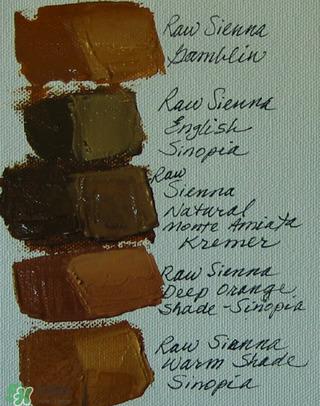 Raw Sienna
Gamblin
Raw Sienna
English
Sinopia
Raw
Sienna
Natural
Monte Amiata
Kremer
Raw Sienna
Deep Orange
Shade-Sinopia
Raw Sienna
Warm Shade
Sinopia